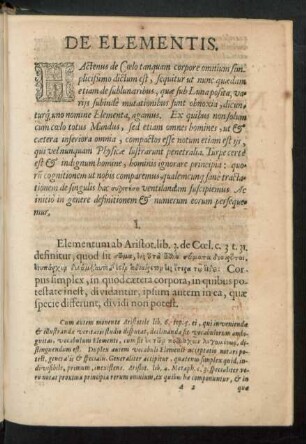 DE ELEMENTIS.
HActenus de Cœlo tanquam corpore omnium sim-
plicissimo dictum est, sequitur ut nunc quædam
etiam de sublunaribus, quæ sub Luna posita, va-
rijs subinde mutationibus sunt obnoxia, dicun-
turq; uno nomine Elementa, agamus. Ex quibus non solum
cum cœlo totus Mundus, sed etiam omnes homines, ut &
cætera inferiora omnia, compactos esse notum etiam est ijs,
qui vel nunquam Physicæ lustrarunt penetralia. Turpe certè
est & indignum homine, hominis ignorare principia: quo-
rum cognitionem ut nobis comparemus qualemcunq; sanè tractatio-
nem de singulis hac ventilandam suscipimus. Ac
initio in genere definitionem & numerum eorum persequemur.
I.
Elementum ab Aristot. lib. 3. de Cœl. c. 3 t. 31.
definitur, quod sit
Cor-
pus simplex, in quod cætera corpora, in quibus po-
testate inest, dividantur, ipsum autem in ea, quæ
specie differunt, dividi non potest.
Cum autem moneute Aristotel. lib.
& illustranda veritatis studio
guitas; vocabulum Elementi, cum sit
distinguendum est. Duplex autem vocabuli Elementi acceptio notari po-
test, generalis & specialis. Generaliter accipitur, quatenus simplex quid, in-
divisibile, primum, inexistens. Aristot. lib. 4. Metaph. c. 3. Specialiter ve-
rò notat proxima principia rerum omnium, ex quibus hæ componuntur, & in
A 2 quæ